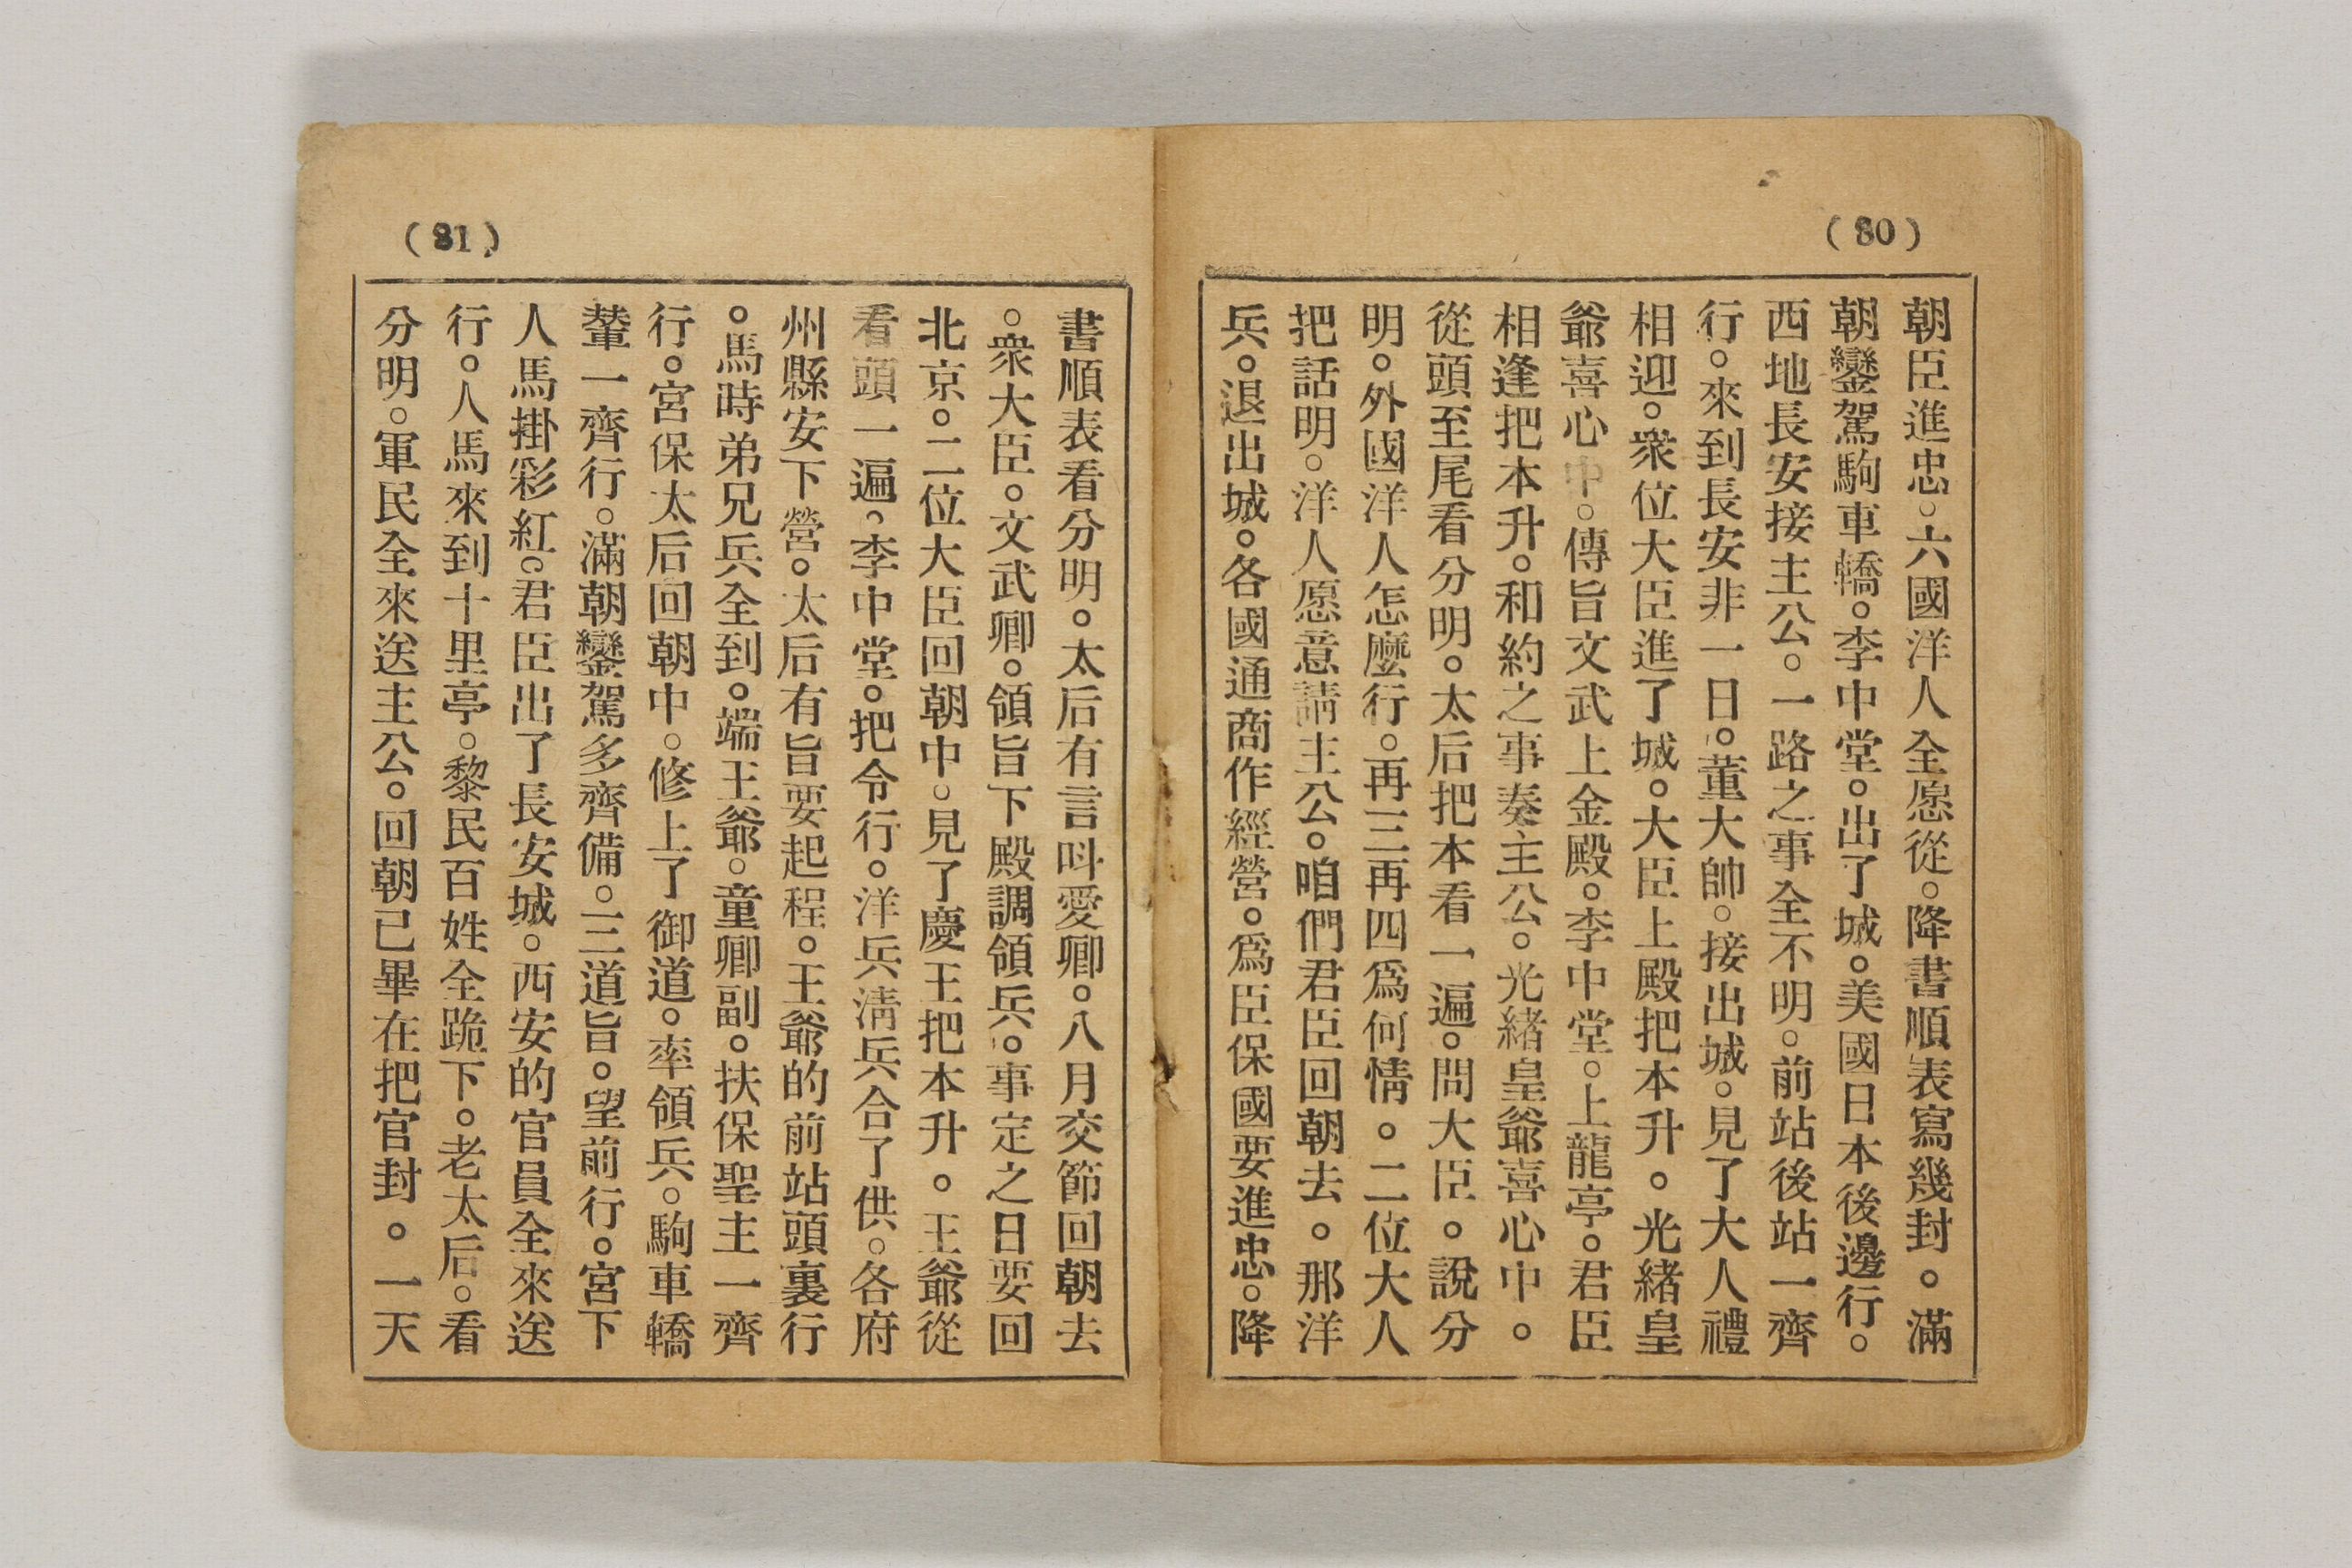 (80)
朝臣進忠。六國洋人全愿從。降書順表寫幾封。滿
朝鑾駕駒車轎。李中堂。出了城。美國日本後邊行。
西地長安接主公。一路之事全不明。前站後站一齊
行。來到長安非一日。董大帥。接出城。見了大人禮
相迎。衆位大臣進了城。大臣上殿把本升。光緒皇
爺喜心中。傳旨文武上金殿。李中堂。上龍亭。君臣
相逢把本升。和約之事奏主公。光緒皇爺喜心中。
從頭至尾看分明。太后把本看一遍。問大臣。說分
明。外國洋人怎麼行。再三再四爲何情。二位大人
把話明。洋人愿意請主公。咱們君臣回朝去。那洋
兵。退出城。各國通商作經營。爲臣保國要進忠。降
(81)
書順表看分明。太后有言呌愛卿。八月交節回朝去
。衆大臣。文武卿。領旨下殿調領兵。事定之日要回
北京。二位大臣回朝中。見了慶王把本升。王爺從
看頭一遍。李中堂。把令行。洋兵淸兵合了供。各府
州縣安下營。太后有旨要起程。王爺的前站頭裏行
。馬時弟兄兵全到。端王爺。童卿副。扶保聖主一齊
行。宮保太后回朝中。修上了御道。率領兵。駒車轎
輦一齊行。滿朝鑾駕多齊備。三道旨。望前行。宮下
人馬掛彩紅。君臣出了長安城。西安的官員全來送
行。人馬來到十里亭。黎民百姓全跪下。老太后。看
分明。軍民全來送主公。回朝已畢在把官封。一天